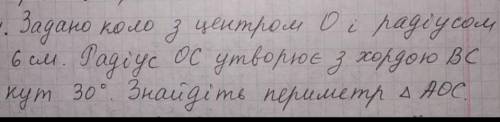 . Задано коло з центром О і радіусом
6 см. Радіус ОС утворює з хордою ВС
кут 30°. Знайдіть периметр △ АОС.